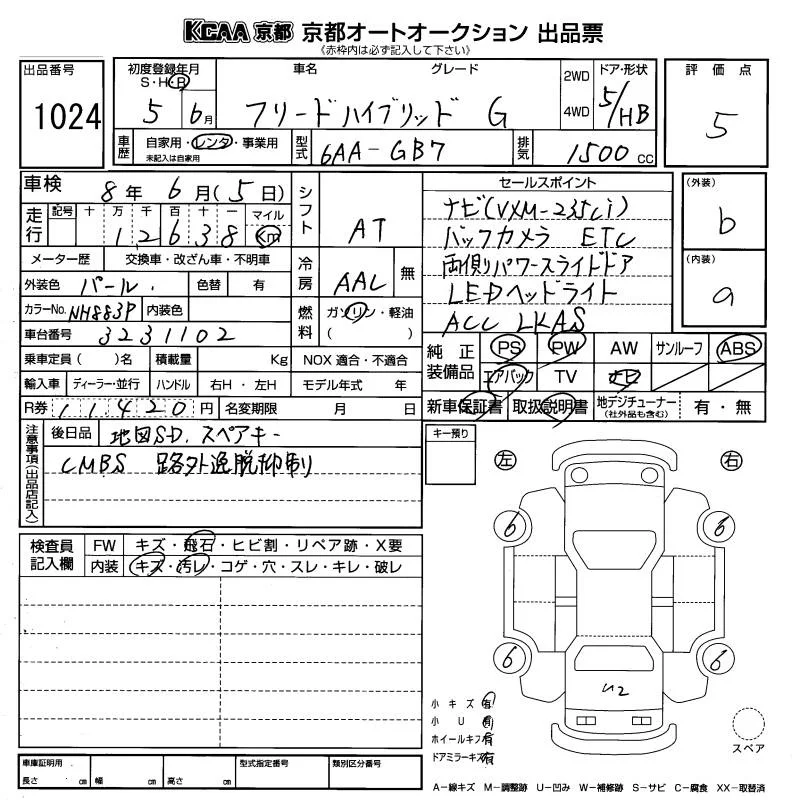 KCAA 京都 京都オートオークション 出品票
《赤枠内は必ず記入して下さい》
出品番号 1024
初度登録年月 S・H・R 5 6月
車名 グレード フリードハイブリッド G
2WD 4WD
ドア・形状 5/HB
評価点 5
車歴 自家用・レンタ・事業用 未記入は自家用
型式 6AA-GB7
排気 1500 cc
車検 8年 6月(5日)
走行 記号 十 万 千 百 十 一 マイル Km
1 2 6 3 8
シフト AT
メーター歴 交換車・改ざん車・不明車
外装色 パール. 色替 有
冷房 AAC 無
カラーNo. NH883P 内装色
燃料 ガソリン・軽油 ( )
車台番号 3231102
乗車定員 ( )名 積載量 Kg NOX 適合・不適合
輸入車 ディーラー・並行 ハンドル 右H・左H モデル年式 年
R券 11420円 名変期限 月 日
セールスポイント
ナビ(VXM-235Ci)
バックカメラ ETC
両側パワースライドドア
LEDヘッドライト
ACC LKAS
(外装) b
(内装) a
純正装備品 PS PW AW サンルーフ ABS
エアバック TV
新車保証書 取扱説明書 地デジチューナー (社外品も含む) 有・無
注意事項(出品店記入)
後日品 地図SD. スペアキー
CMBS 路外逸脱抑制
キー預り
左 右
6 6
6 6
U2
検査員記入欄 FW キズ・飛石・ヒビ割・リペア跡・X要
内装 キズ・汚レ・コゲ・穴・スレ・キレ・破レ
小キズ 有
小U 有
ホイールキズ 有
ドアミラーキズ 有
スペア
車庫証明用 長さ cm 幅 cm 高さ cm
型式指定番号 類別区分番号
A-線キズ M-調整跡 U-凹み W-補修跡 S-サビ C-腐食 XX-取替済